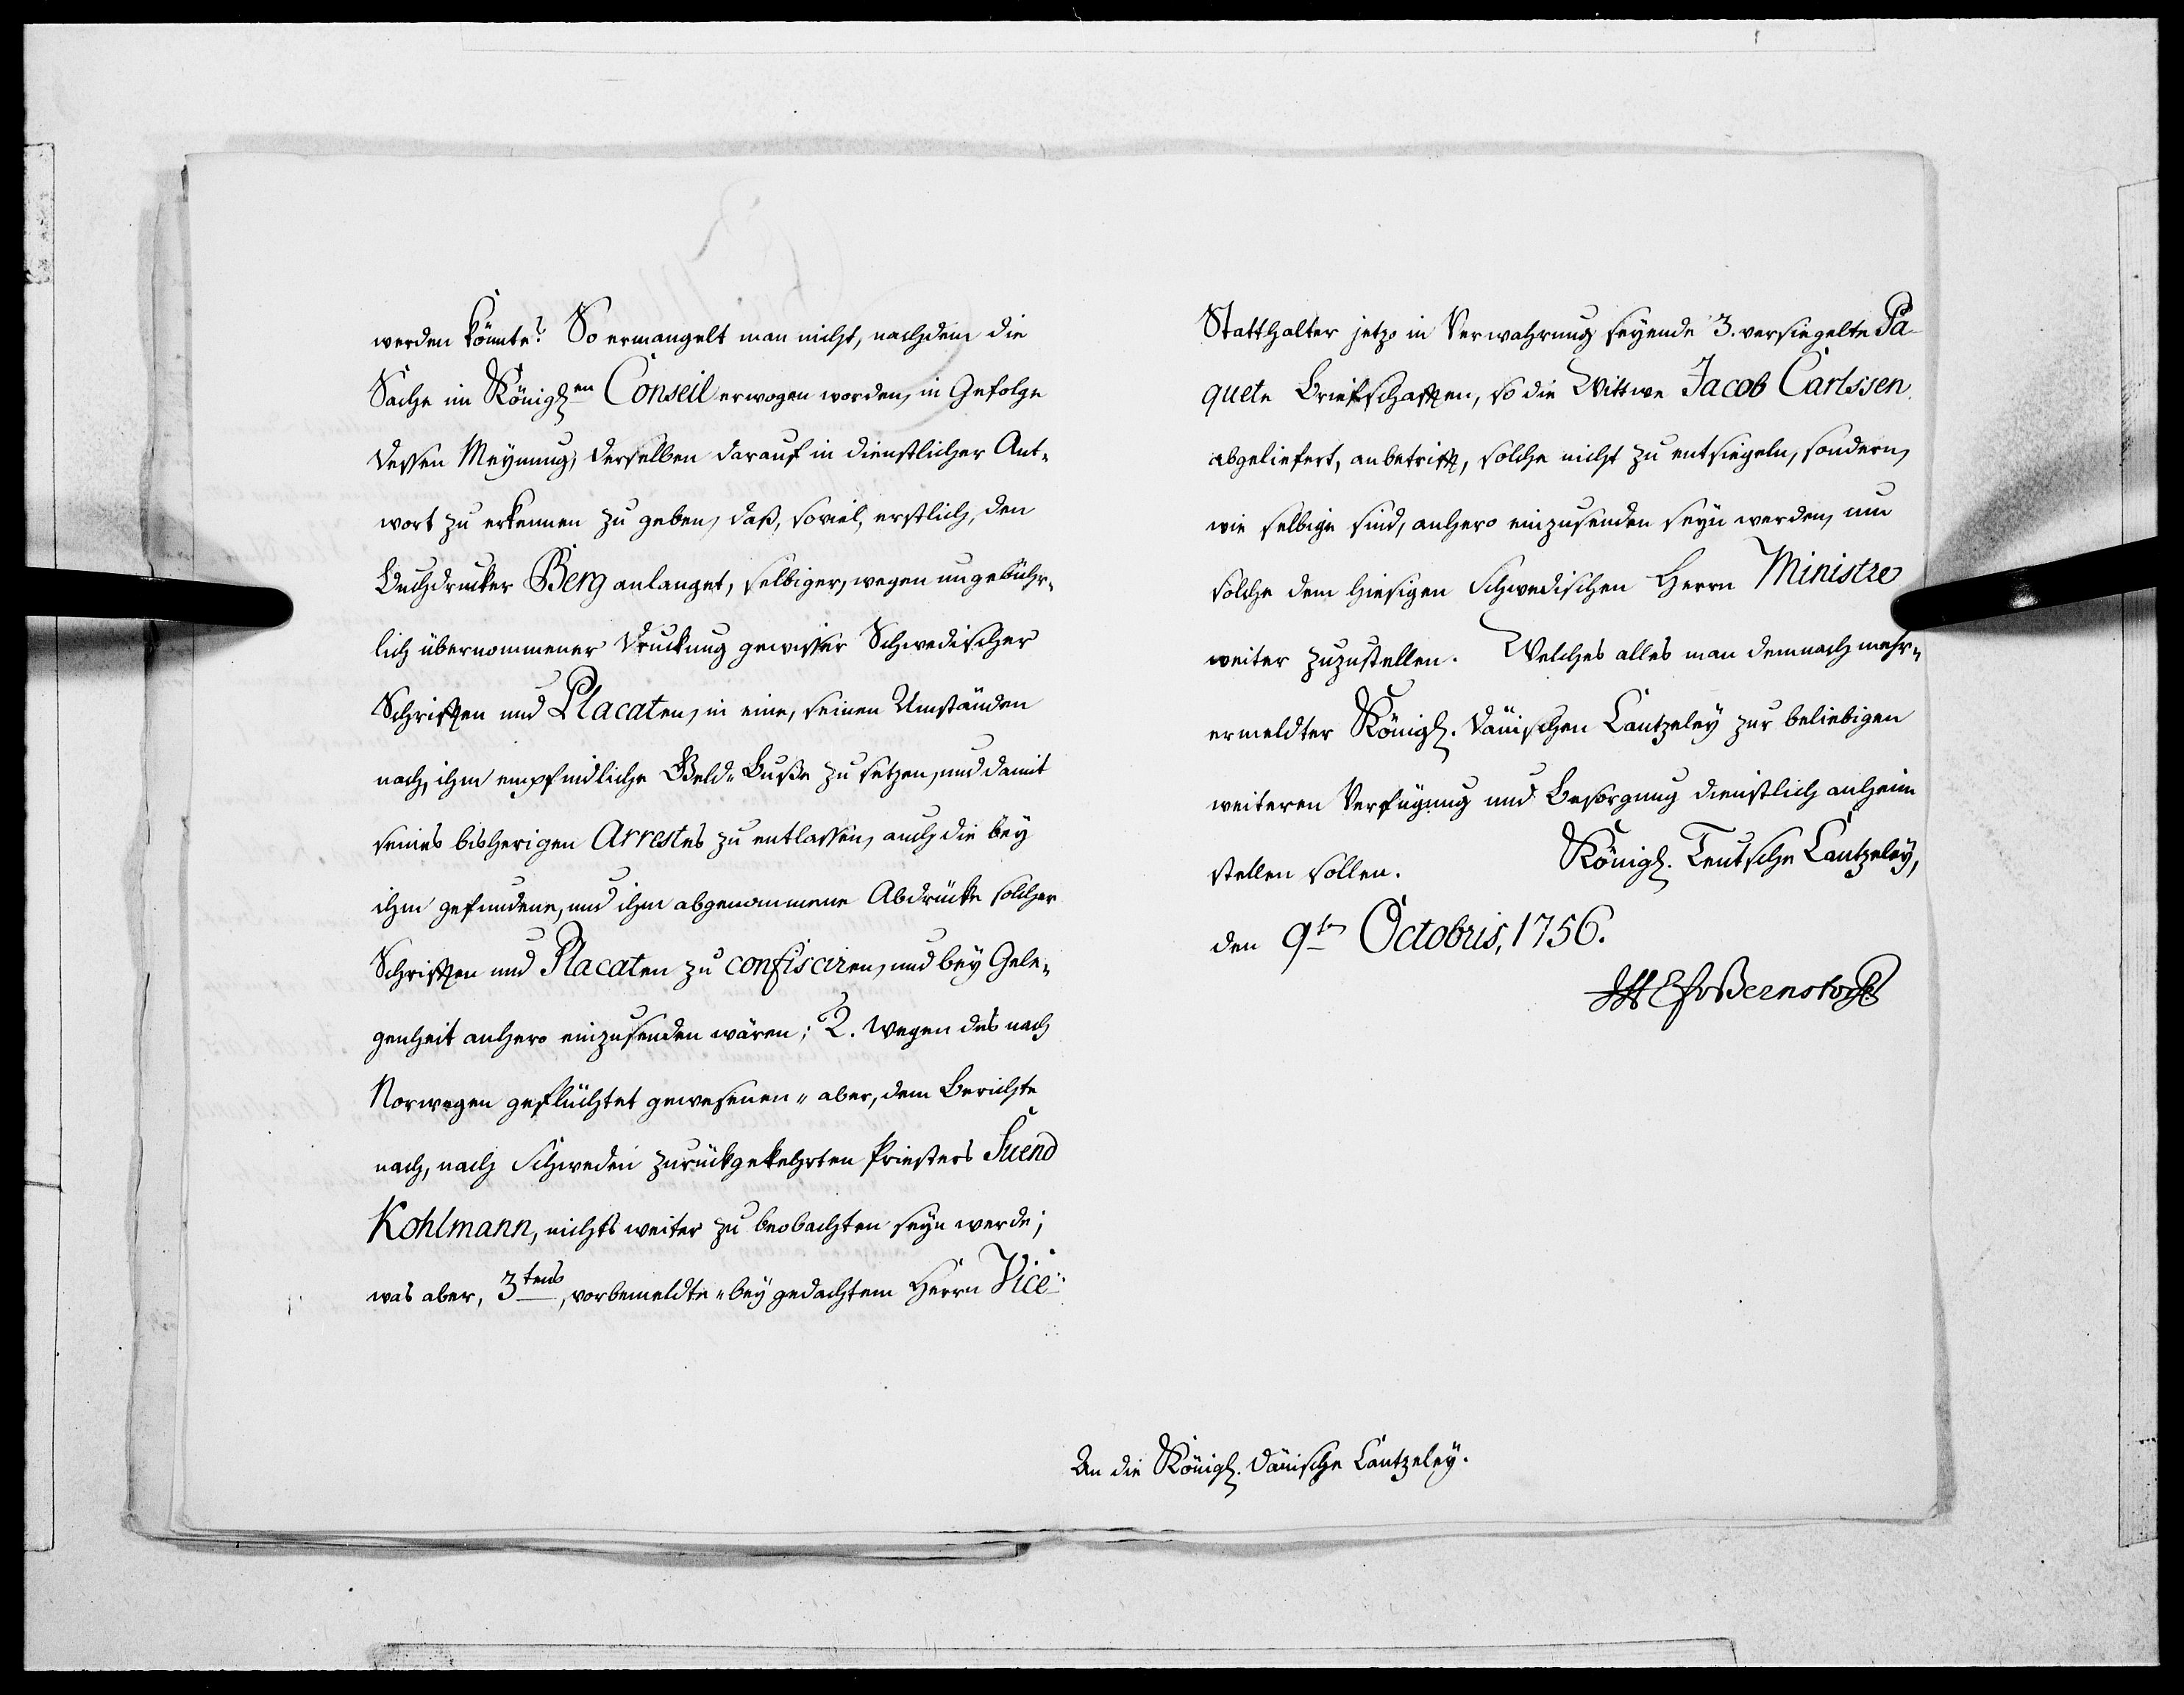 werden könnte? So ermangelt man nicht, nachdem die
Sache im Königl.en Conseil erwogen worden, in Gefolge
dessen Meynung, derselben darauf in dienstlicher Ant-
wort zu erkennen zu geben, daß, soviel, erstlich, den
Buchdrucker Berg anlanget, selbiger, wegen ungebühr-
lich übernommener Druckung gewisser Schwedischer
Schrifften und Placaten, in eine, seinen Umständen
nach, ihm empfindliche Geld-Buße zu setzen, und damit
seines bisherigen Arrestes zu entlassen, auch die bey
ihm gefundene, und ihm abgenommene Abdrücke solcher
Schrifften und Placaten zu confisciren, und bey Gele-
genheit anhero einzusenden wären; 2. Wegen des nach
Norwegen geflüchtet gewesenen- aber, dem Berichte
nach, nach Schweden zurückgekehrten Priesters Suend
Kohlmann, nichts weiter zu beobachten seyn werde;
was aber, 3tens, vorbemeldte- bey gedachtem Herrn Vice-
Statthalter jetzo in Verwahrung seyende 3. versiegelte Pa-
quete Briefschafften, so die Wittwe Jacob Carlssen
abgeliefert, anbetrifft, solche nicht zu entsiegeln, sondern,
wie selbige sind, anhero einzusenden seyn werden, um
solche dem hiesigen Schwedischen Herrn Ministre
weiter zuzustellen. Welches alles man demnach mehr-
ermeldter Königl. Dänischen Cantzeley zur beliebigen
weiteren Verfügung und Besorgung dienstlich anheim
stellen sollen. Königl. Teutsche Cantzeley,
den 9ten Octobris, 1756.
JHE Fr v Bernstorff
An die Königl. Dänische Cantzeley.